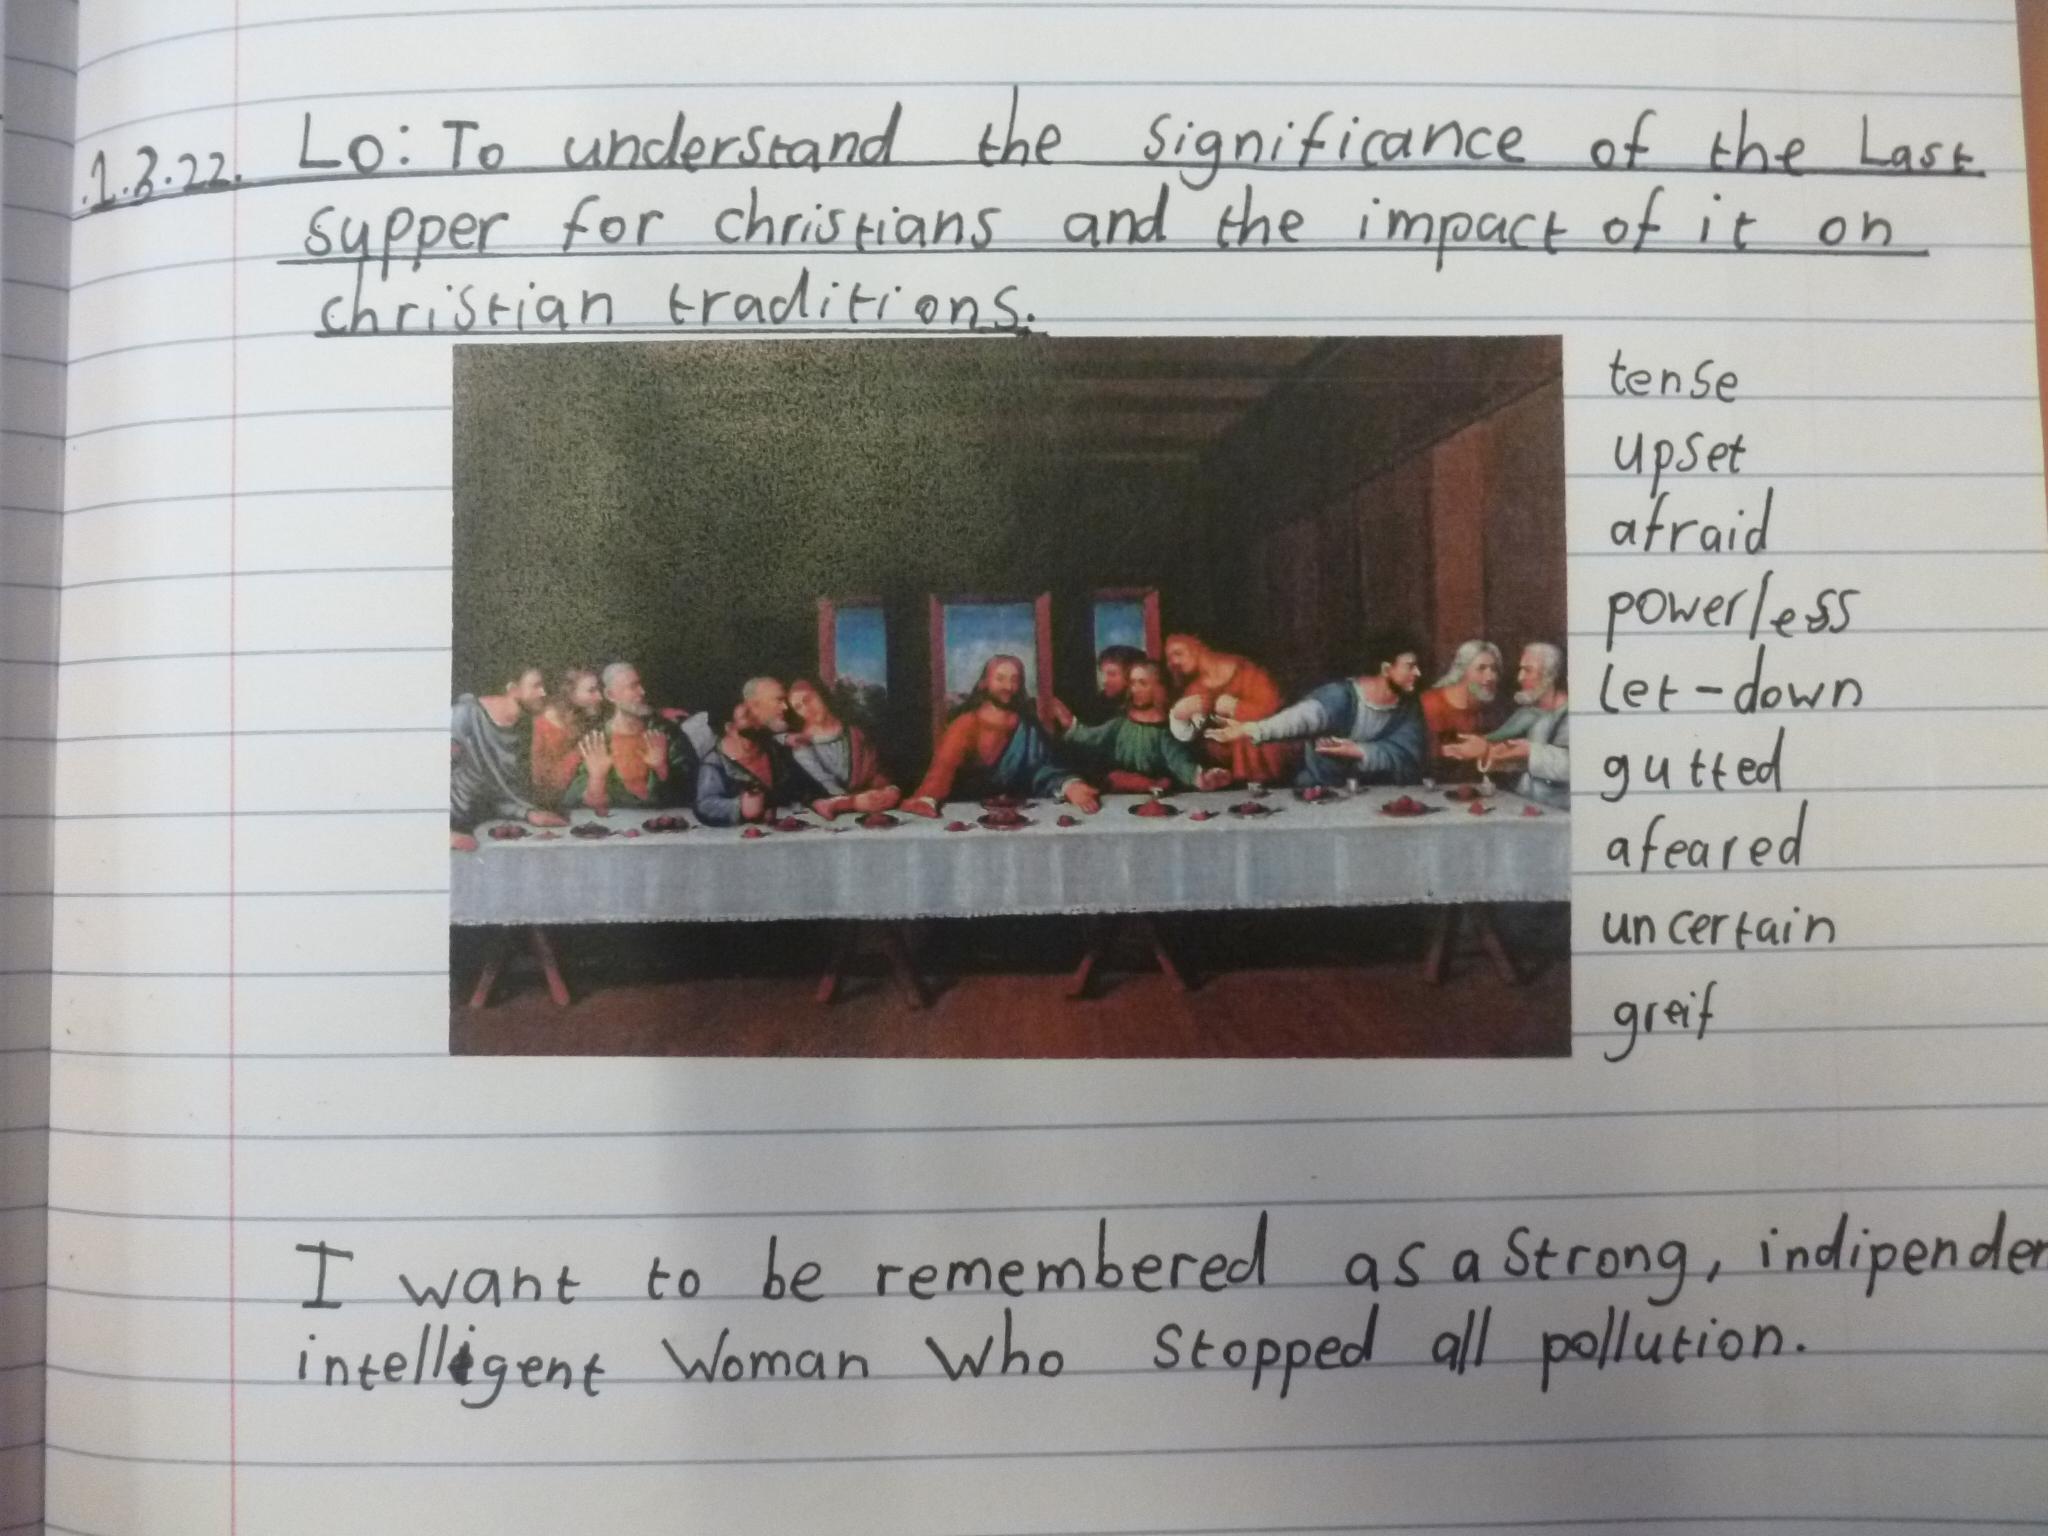 .1.3.22. LO: To understand the significance of the Last
supper for christians and the impact of it on
christian traditions.
tense
upset
afraid
powerless
let-down
gutted
afeared
uncertain
greif
I want to be remembered as a strong, indipenden
intelligent woman who stopped all pollution.